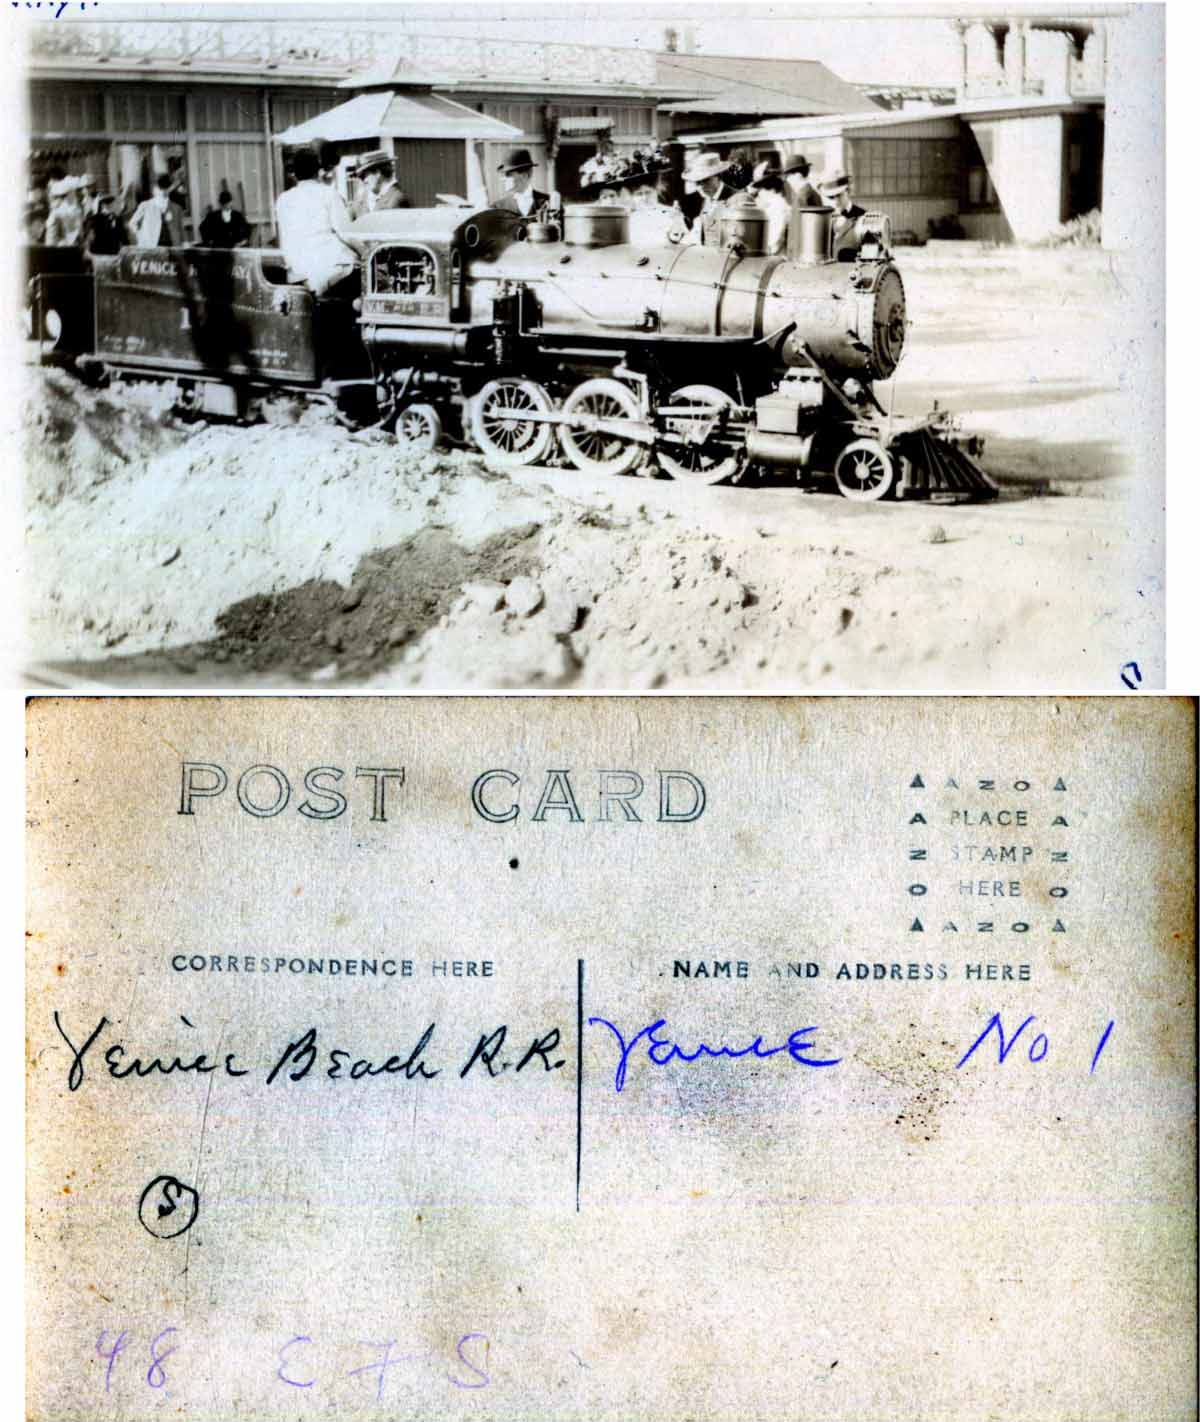 VENICE
1
POST CARD
AZO
PLACE
STAMP
HERE
AZO
AZO
AZO
CORRESPONDENCE HERE
NAME AND ADDRESS HERE
Venice Beach R.R.
Venice No 1
S
48 E F S